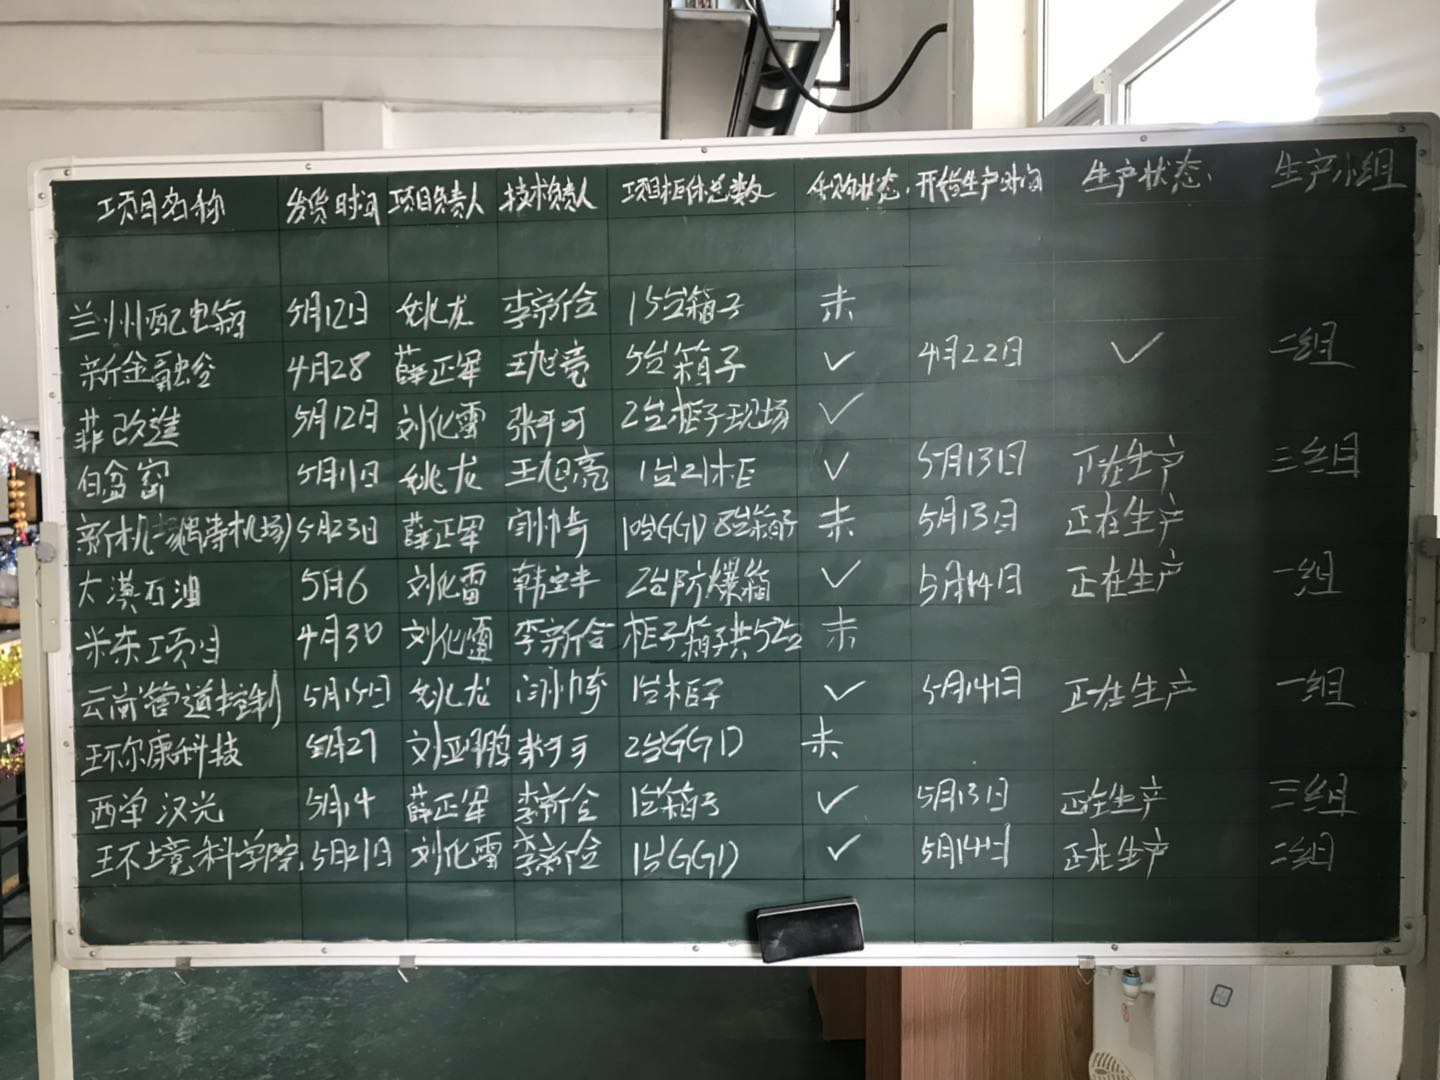 项目名称 发货时间 项目负责人 技术负责人 项目柜体总数 采购状态 开始生产时间 生产状态 生产小组
兰州配电箱 5月12日 姚龙 李新会 15台箱子 未
新金融 4月28 薛正军 王旭亮 5台箱子 ✓ 4月22日 ✓ 二组
菲改造 5月12日 刘化雷 张可可 2台柜子现场 ✓
5月11日 姚龙 王旭亮 1台21柜 ✓ 5月13日 正在生产 三组
新机场 机场) 5月23日 薛正军 帅奇 10台GGD 8台箱子 未 5月13日 正在生产
大漠石油 5月6 刘化雷 韩 2台防爆箱 ✓ 5月14日 正在生产 一组
米东工项目 4月30 刘化雷 李新会 柜子箱子共52台 未
云南管道控制 5月15日 姚龙 闫帅奇 1台柜子 ✓ 5月14日 正在生产 一组
环尔康科技 5月27 刘亚鹏 张可可 2台GGD 未
西单汉光 5月14 薛正军 李新会 1台箱子 ✓ 5月13日 正在生产 三组
环境科学院 5月21日 刘化雷 李新会 1台GGD ✓ 5月14日 正在生产 二组